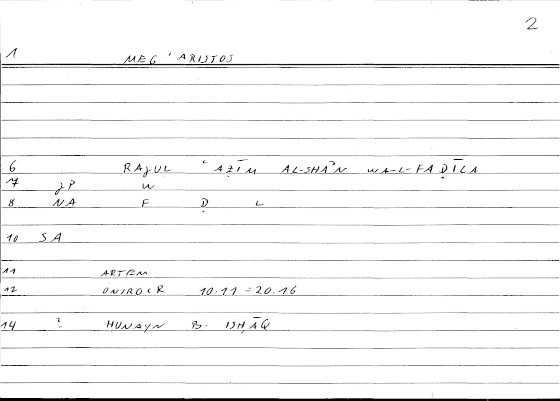 2
1 MEG ' ARISTOS
6 RAJUL ʿAẒĪM AL-SHAʾN WA-L-FAḌĪLA
7 JP W
8 NA F Ḍ L
10 SA
11 ARTEM
12 ONIROCR 10.11 = 20.16
14 ? ḤUNAYN B. ISḤĀQ